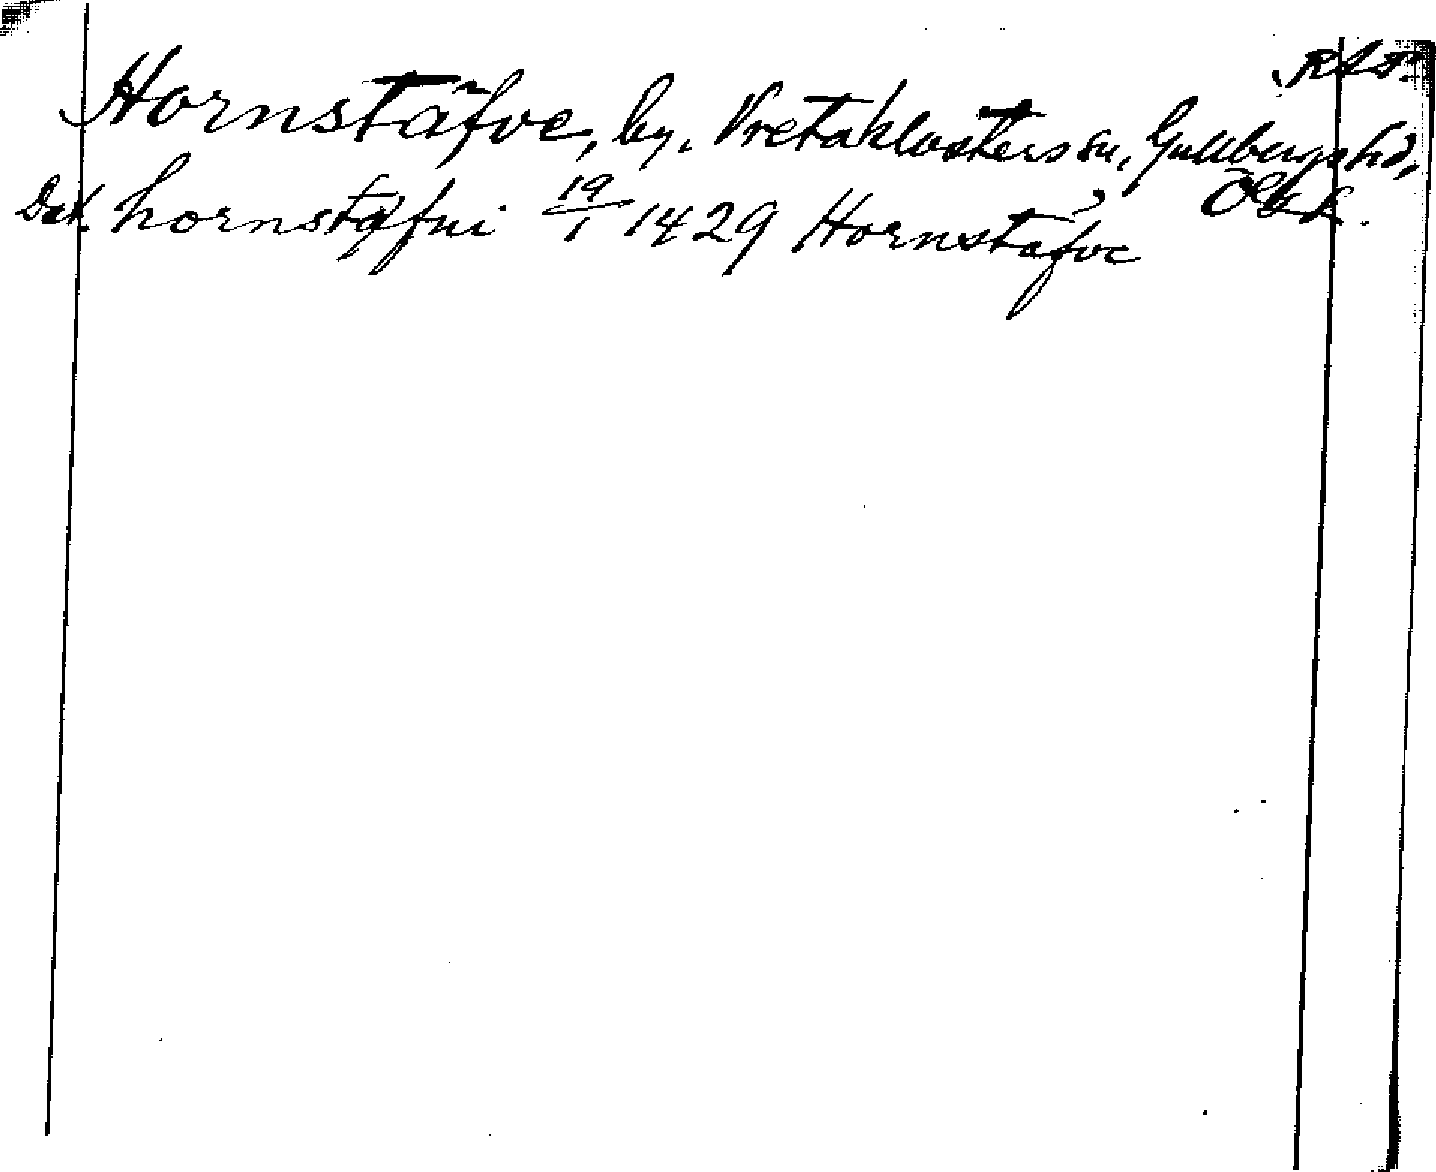 RAP.
Hornstäfve, by, Vretaklosters sn, Gullbergs hd,
Dat. hornstäfui 19/1 1429 Hornstäfve Ög. L.